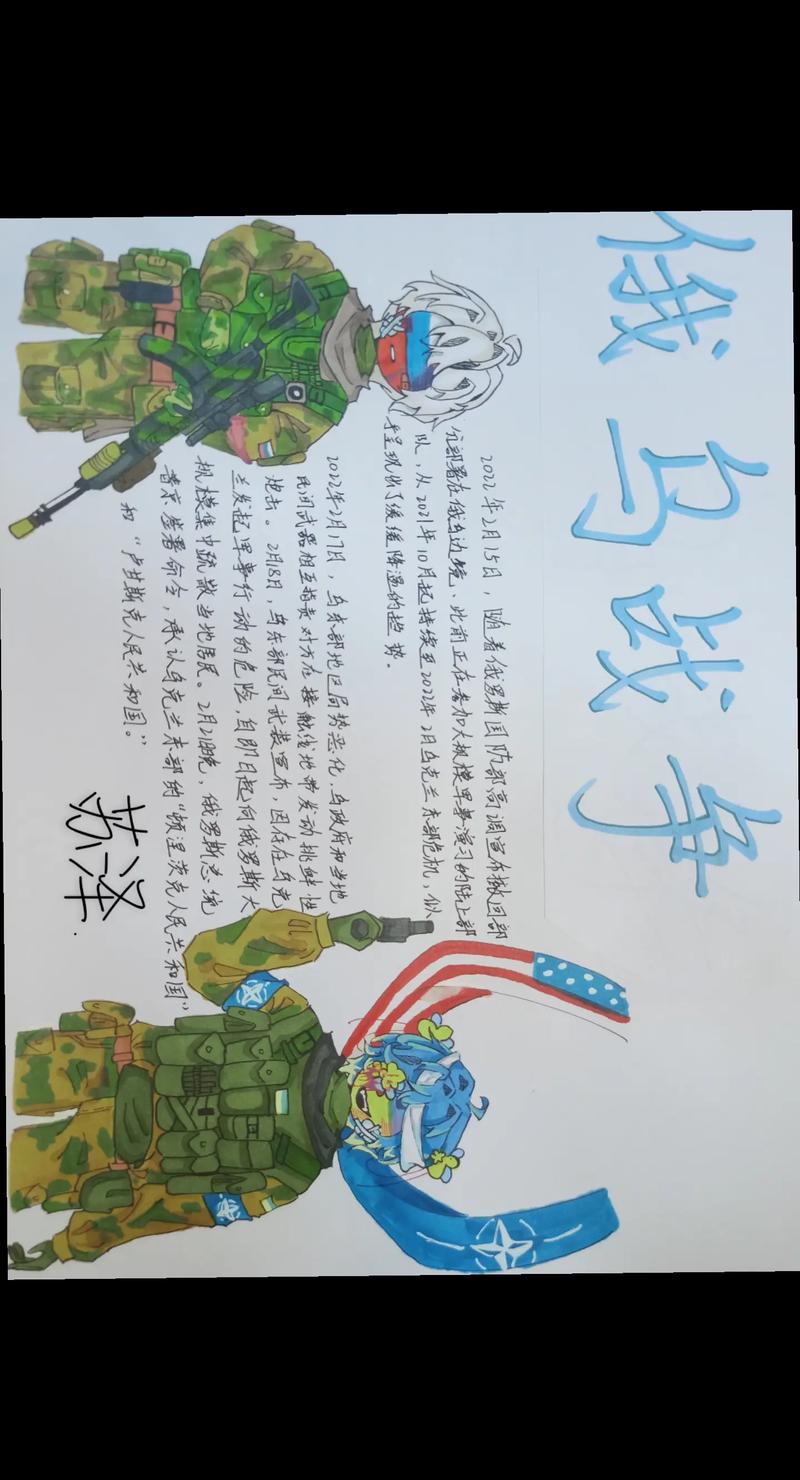 俄乌战争
2022年2月15日，随着俄罗斯国防部高调宣布撤回部
分部署在俄乌边境、此前正在参加大规模军事演习的陆上部
队，从2021年10月起持续至2022年2月乌克兰东部危机，似
乎呈现出了缓缓降温的趋势。
2022年2月17日，乌东部地区局势恶化，乌政府和当地
民间武器相互指责对方在接触线地带发动挑衅性
炮击。2月18日，乌东部民间武装宣布，因存在乌克
兰发起军事行动的危险，自即日起向俄罗斯大
规模集中疏散当地居民。2月21日晚，俄罗斯总统
普京签署命令，承认乌克兰东部的“顿涅茨克人民共和国”
和“卢甘斯克人民共和国。”
苏泽